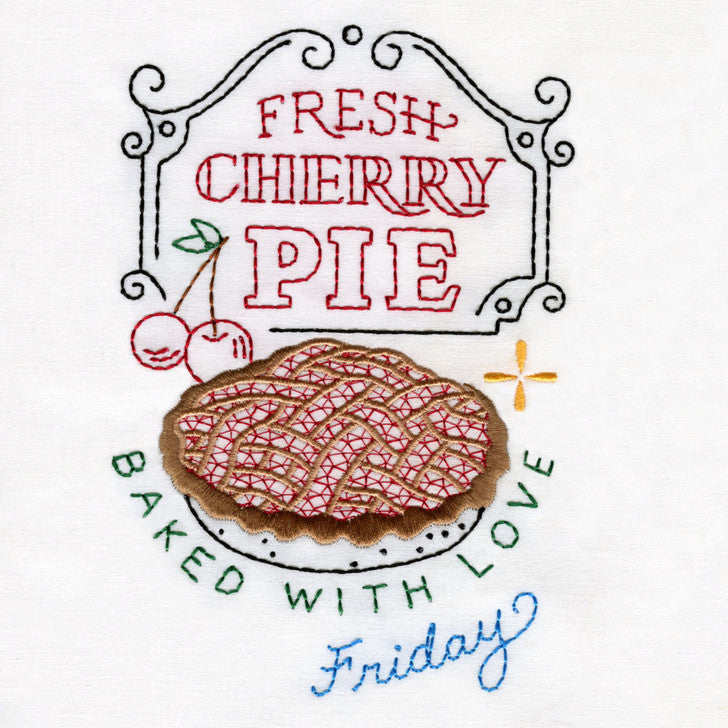 FRESH
CHERRY
PIE
BAKED WITH LOVE
Friday